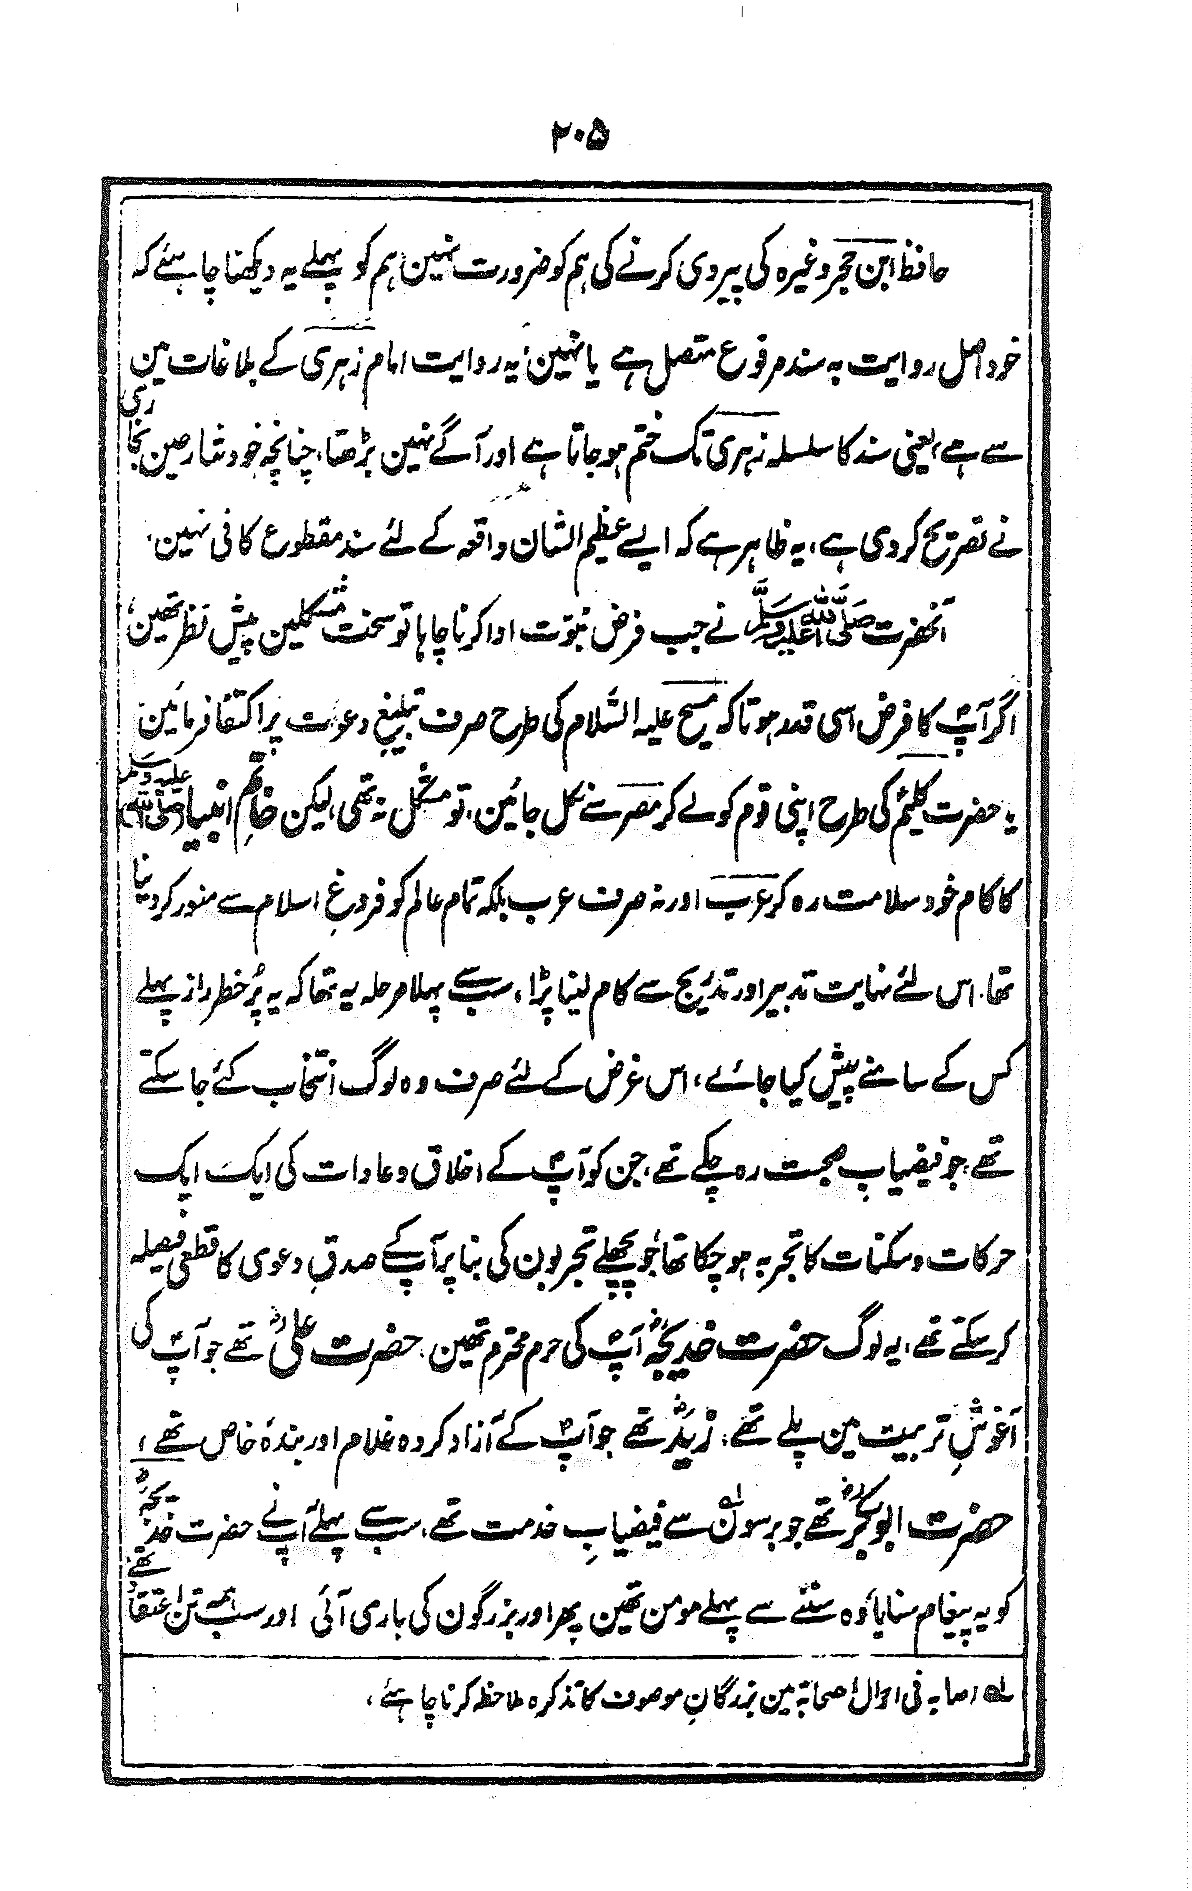 ۲۰۵
حافظ ابن حجر وغیرہ کی پیروی کرنے کی ہم کو ضرورت نہین ہم کو پہلے یہ دیکھنا چاہئے کہ
خود اصل روایت بہ سند مرفوع متصل ہے یا نہین؛ یہ روایت امام زہری کے بلاغات مین
سے ہے، یعنی سند کا سلسلہ زہری تک ختم ہو جاتا ہے اور آگے نہین بڑھتا، چنانچہ خود شارحین بخاری
نے تصریح کر دی ہے، یہ ظاہر ہے کہ ایسے عظیم الشان واقعہ کے لئے سند مقطوع کافی نہین.
آنحضرت صلی اللہ علیہ وسلم نے جب فرض نبوت ادا کرنا چاہا تو سخت مشکلین پیش نظر تھین،
اگر آپؐ کا فرض اسی قدر ہوتا کہ مسیح علیہ السّلام کی طرح صرف تبلیغِ دعوت پر اکتفا فرمائین
یا حضرت کلیمؑ کی طرح اپنی قوم کو لے کر مصر سے نکل جائین، تو مشکل نہ تھی، لیکن خاتمِ انبیا (صلی اللہ علیہ وسلم)
کا کام خود سلامت رہ کر عرب اور نہ صرف عرب بلکہ تمام عالم کو فروغِ اسلام سے منور کر دینا
تھا. اس لئے نہایت تدبیر اور تدریج سے کام لینا پڑا، سب سے پہلا مرحلہ یہ تھا کہ یہ پُر خطر راز پہلے
کس کے سامنے پیش کیا جائے، اس غرض کے لئے صرف وہ لوگ انتخاب کئے جا سکتے
تھے جو فیضیابِ صحبت رہ چکے تھے، جن کو آپؐ کے اخلاق و عادات کی ایک ایک
حرکات و سکنات کا تجربہ ہو چکا تھا، جو پچھلے تجربون کی بنا پر آپ کے صدقِ دعوی کا قطعی فیصلہ
کر سکتے تھے، یہ لوگ حضرت خدیجہؓ آپؐ کی حرم محترم تھین. حضرت علیؓ تھے جو آپؐ کی
آغوشِ تربیت مین پلے تھے، زیدؓ تھے جو آپؐ کے آزاد کردہ غلام اور بندۂ خاص تھے،
حضرت ابوبکرؓ تھے جو برسون سے فیضیابِ خدمت تھے، سب سے پہلے آپ نے حضرت خدیجہؓ
کو یہ پیغام سنایا، وہ سننے سے پہلے مومن تھین پھر اور بزرگون کی باری آئی اور سب ہمہ تن اعتقاد تھے
لہ اصابہ فی احوال الصحابہ مین بزرگانِ موصوف کا تذکرہ ملاحظہ کرنا چاہئے،